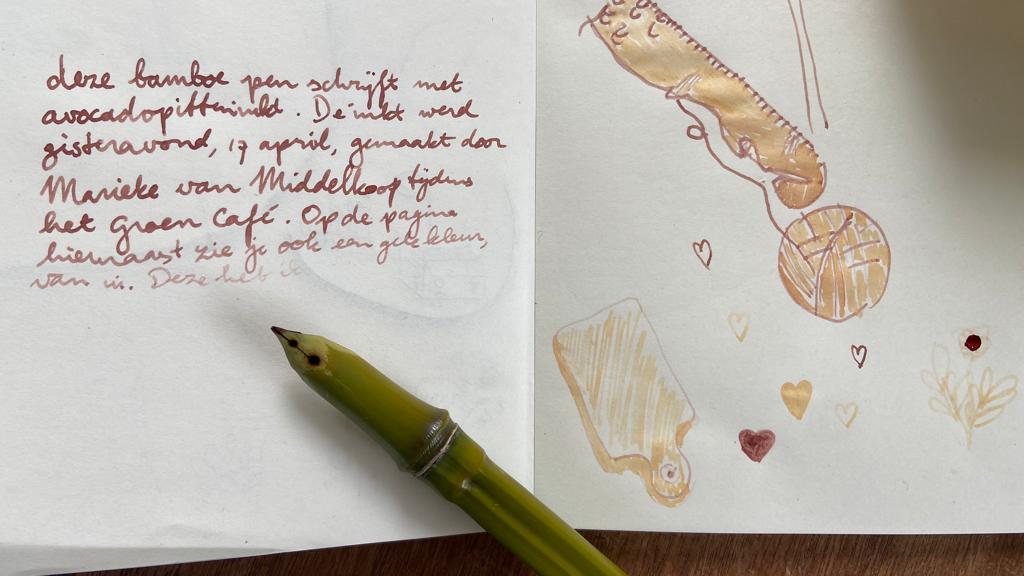 deze bamboe pen schrijft met
avocadopitteninkt. De inkt werd
gisteravond, 17 april, gemaakt door
Marieke van Middelkoop tijdens
het Groen Café. Op de pagina
hiernaast zie je ook een gele kleur,
van ui. Deze heb ik